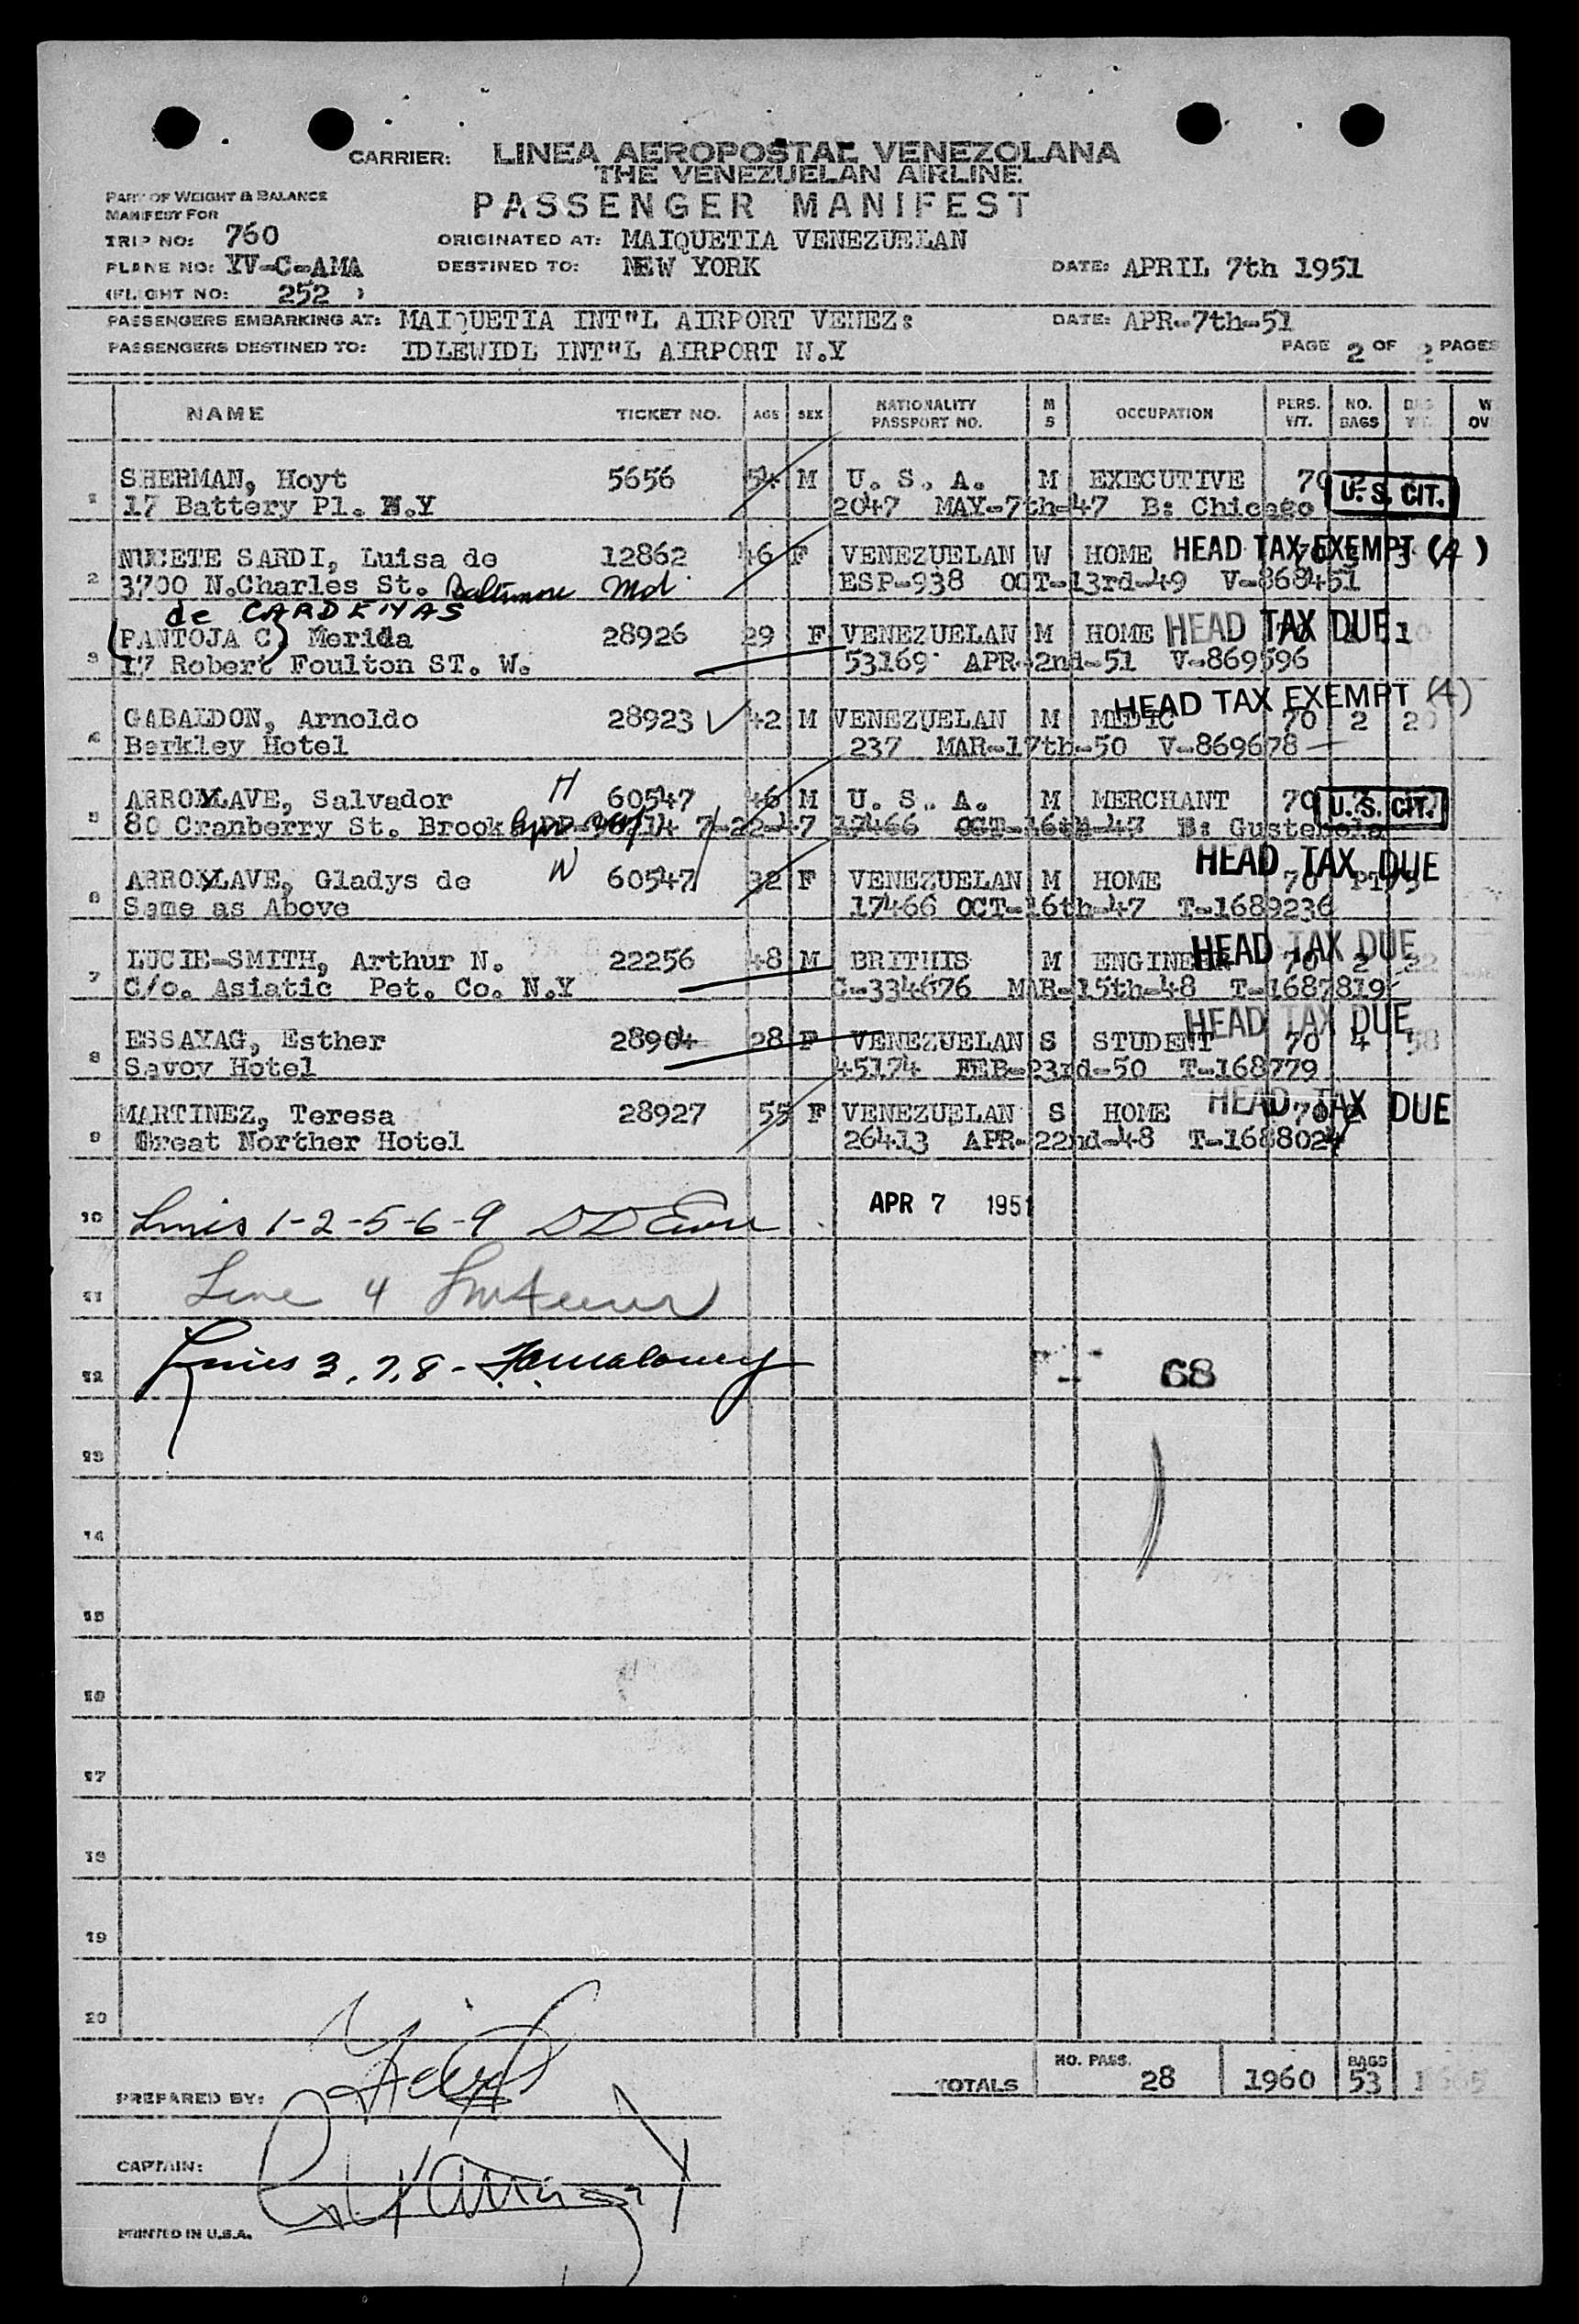 CARRIER: LINEA AEROPOSTAL VENEZOLANA
THE VENEZUELAN AIRLINE
PASSENGER MANIFEST
PART OF WEIGHT & BALANCE
MANIFEST FOR
TRIP NO: 760
ORIGINATED AT: MAIQUETIA VENEZUELAN
PLANE NO: YV-C-AMA
DESTINED TO: NEW YORK
DATE: APRIL 7th 1951
(FLIGHT NO: 252 )
PASSENGERS EMBARKING AT: MAIQUETIA INT"L AIRPORT VENEZ: DATE: APR-7th-51
PASSENGERS DESTINED TO: IDLEWIDL INT"L AIRPORT N.Y PAGE 2 OF 2 PAGES
NAME TICKET NO. AGE SEX NATIONALITY PASSPORT NO. M S OCCUPATION PERS. WT. NO. BAGS
1 SHERMAN, Hoyt 5656 54 M U. S. A. M EXECUTIVE 70
17 Battery Pl. N.Y 2047 MAY-7th-47 B: Chicago U. S. CIT.
2 NUCETE SARDI, Luisa de 12862 46 F VENEZUELAN W HOME HEAD TAX EXEMPT (4)
3700 N.Charles St. Baltimore Md. ESP-938 OCT-13rd-49 V-868451
de CARDENAS
3 (PANTOJA C) Merida 28926 29 F VENEZUELAN M HOME HEAD TAX DUE
17 Robert Foulton ST. W. 53169 APR-2nd-51 V-869596
HEAD TAX EXEMPT (4)
4 GABALDON, Arnoldo 28923 42 M VENEZUELAN M MEDIC 70 2 20
Berkley Hotel 237 MAR-17th-50 V-869678
5 ARROYLAVE, Salvador H 60547 46 M U. S. A. M MERCHANT 70 U. S. CIT.
80 Cranberry St. Brook 7-22-47 17466 OCT-16th-47 B:
HEAD TAX DUE
6 ARROYLAVE, Gladys de W 60547 32 F VENEZUELAN M HOME 70
Same as Above 17466 OCT-16th-47 T-1689236
7 LUCIE-SMITH, Arthur N. 22256 48 M BRITHIS M ENGINEER HEAD TAX DUE 70 2 22
C/o. Asiatic Pet. Co. N.Y C-334676 MAR-15th-48 T-1687819
HEAD TAX DUE
8 ESSAYAG, Esther 28904 28 F VENEZUELAN S STUDENT 70 4 58
Savoy Hotel 45174 FEB-23rd-50 T-168779
9 MARTINEZ, Teresa 28927 55 F VENEZUELAN S HOME HEAD TAX DUE 70
Great Norther Hotel 26413 APR-22nd-48 T-1688024
10 Lines 1-2-5-6-9 APR 7 1951
11 Line 4
12 Lines 3, 7, 8 - 68
13
14
15
16
17
18
19
20
TOTALS NO. PASS. 28 1960 BAGS 53
PREPARED BY:
CAPTAIN:
PRINTED IN U.S.A.